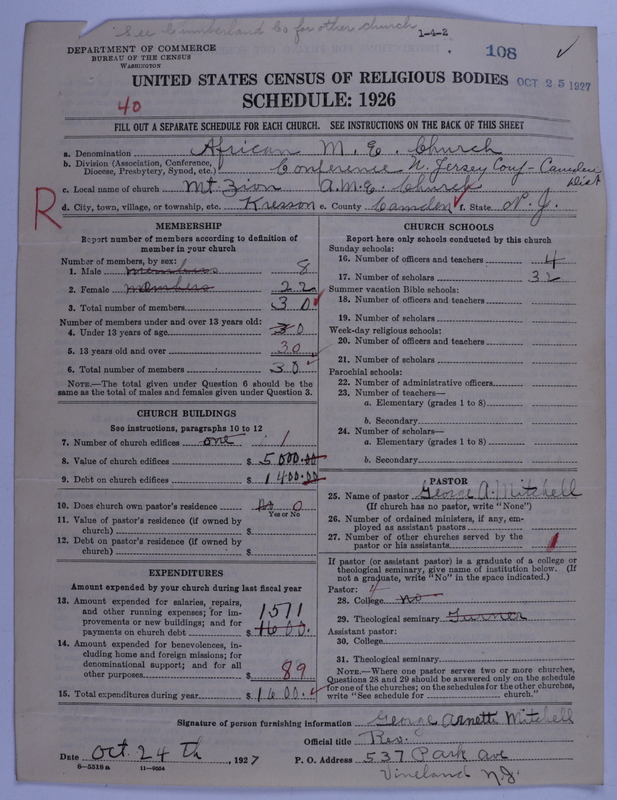 See Cumberland Co for other church.
1-4-2
108
OCT 25 1927
DEPARTMENT OF COMMERCE
BUREAU OF THE CENSUS
WASHINGTON
UNITED STATES CENSUS OF RELIGIOUS BODIES
SCHEDULE: 1926
40
FILL OUT A SEPARATE SCHEDULE FOR EACH CHURCH. SEE INSTRUCTIONS ON THE BACK OF THIS SHEET
a. Denomination African M. E. Church
b. Division (Association, Conference, Diocese, Presbytery, Synod, etc.) Conference N. Jersey Conf - Camden Dist
c. Local name of church Mt. Zion A.M.E. Church
R
d. City, town, village, or township, etc. Kresson e. County Camden f. State N. J.
MEMBERSHIP
Report number of members according to definition of
member in your church
Number of members, by sex:
1. Male members 8
2. Female members 22
3. Total number of members 30
Number of members under and over 13 years old:
4. Under 13 years of age 30
5. 13 years old and over 30
6. Total number of members 30
NOTE.—The total given under Question 6 should be the
same as the total of males and females given under Question 3.
CHURCH BUILDINGS
See instructions, paragraphs 10 to 12
7. Number of church edifices one 1
8. Value of church edifices $ 5000.00
9. Debt on church edifices $ 1400.00
10. Does church own pastor's residence No 0
Yes or No
11. Value of pastor's residence (if owned by
church) $
12. Debt on pastor's residence (if owned by
church) $
EXPENDITURES
Amount expended by your church during last fiscal year
13. Amount expended for salaries, repairs,
and other running expenses; for im-
provements or new buildings; and for
payments on church debt $ 1600. 1511
14. Amount expended for benevolences, in-
cluding home and foreign missions; for
denominational support; and for all
other purposes $ 89
15. Total expenditures during year $ 1600.
CHURCH SCHOOLS
Report here only schools conducted by this church
Sunday schools:
16. Number of officers and teachers 4
17. Number of scholars 32
Summer vacation Bible schools:
18. Number of officers and teachers
19. Number of scholars
Week-day religious schools:
20. Number of officers and teachers
21. Number of scholars
Parochial schools:
22. Number of administrative officers
23. Number of teachers—
a. Elementary (grades 1 to 8)
b. Secondary
24. Number of scholars—
a. Elementary (grades 1 to 8)
b. Secondary
PASTOR
25. Name of pastor George A. Mitchell
(If church has no pastor, write "None")
26. Number of ordained ministers, if any, em-
ployed as assistant pastors
27. Number of other churches served by the
pastor or his assistants 1
If pastor (or assistant pastor) is a graduate of a college or
theological seminary, give name of institution below. (If
not a graduate, write "No" in the space indicated.)
Pastor: 4
28. College No
29. Theological seminary Turner
Assistant pastor:
30. College
31. Theological seminary
NOTE.—Where one pastor serves two or more churches,
Questions 28 and 29 should be answered only on the schedule
for one of the churches; on the schedules for the other churches,
write "See schedule for church."
Signature of person furnishing information George Arnette Mitchell
Official title Rev.
Date Oct. 24 th, 1927
P. O. Address 537 Park Ave
Vineland N.J.
6—5318 a 11—9554